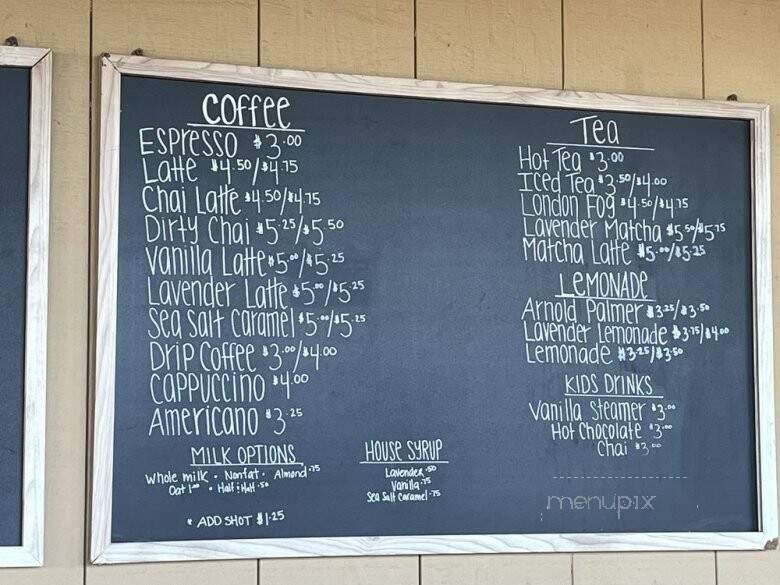 Coffee
Espresso $3.00
Latte $4.50/$4.75
Chai Latte $4.50/$4.75
Dirty Chai $5.25/$5.50
Vanilla Latte $5.00/$5.25
Lavender Latte $5.00/$5.25
Sea Salt Caramel $5.00/$5.25
Drip Coffee $3.00/$4.00
Cappuccino $4.00
Americano $3.25
Milk Options
Whole milk • Nonfat • Almond .75
Oat 1.00 • Half & Half .50
* Add Shot $1.25
House Syrup
Lavender .50
Vanilla .75
Sea Salt Caramel .75
Tea
Hot Tea $3.00
Iced Tea $3.50/$4.00
London Fog $4.50/$4.75
Lavender Matcha $5.50/$5.75
Matcha Latte $5.00/$5.25
Lemonade
Arnold Palmer $3.25/$3.50
Lavender Lemonade $3.75/$4.00
Lemonade $3.25/$3.50
Kids Drinks
Vanilla Steamer $3.00
Hot Chocolate $3.00
Chai $3.00
menupix